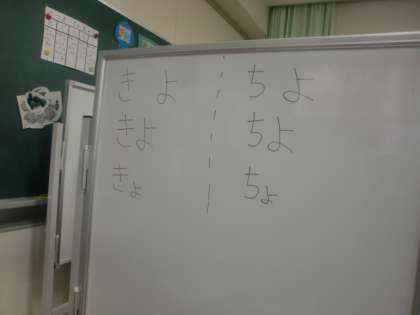 きよ ちよ
きよ ちよ
きょ ちょ